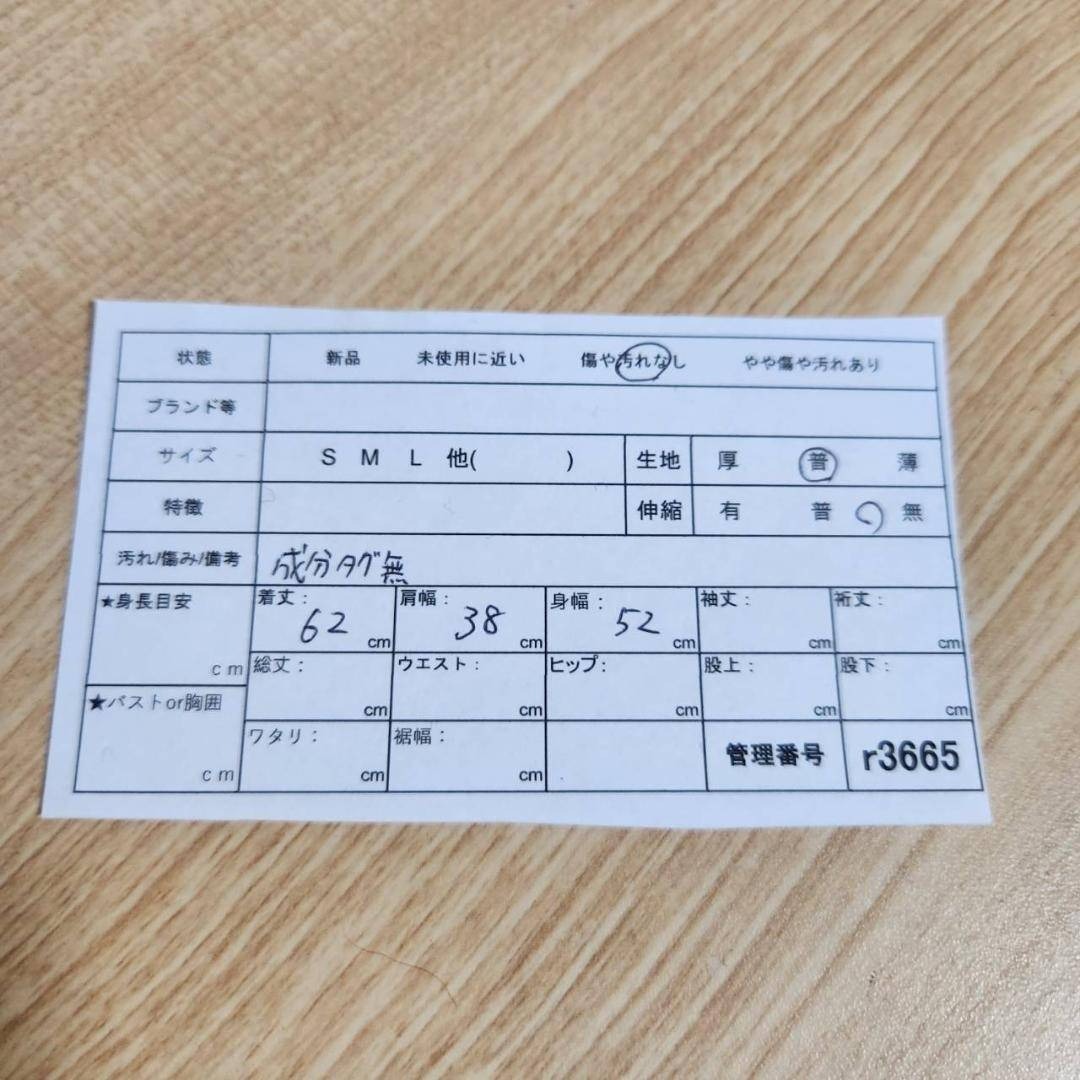 状態 新品 未使用に近い 傷や汚れなし やや傷や汚れあり
ブランド等
サイズ S M L 他( ) 生地 厚 普 薄
特徴 伸縮 有 普 無
汚れ/傷み/備考 成分タグ無
★身長目安 cm 着丈: 62 cm 肩幅: 38 cm 身幅: 52 cm 袖丈: cm 裄丈: cm
総丈: cm ウエスト: cm ヒップ: cm 股上: cm 股下: cm
★バストor胸囲 cm ワタリ: cm 裾幅: cm 管理番号 r3665